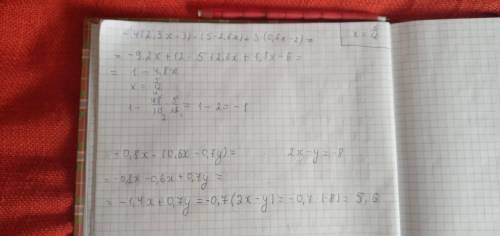 -4(2,3x - 3) - (5 - 2,6x) + 3(0,6x - 2) =
x = 5/12
= -9,2x + 12 - 5 + 2,6x + 1,8x - 6 =
= 1 - 4,8x
x = 5/12
1 - 48/10 · 5/12 = 1 - 2 = -1
= -0,8x - (0,6x - 0,7y) =
2x - y = -8
= -0,8x - 0,6x + 0,7y =
= -1,4x + 0,7y = -0,7(2x - y) = -0,7 · (-8) = 5,6